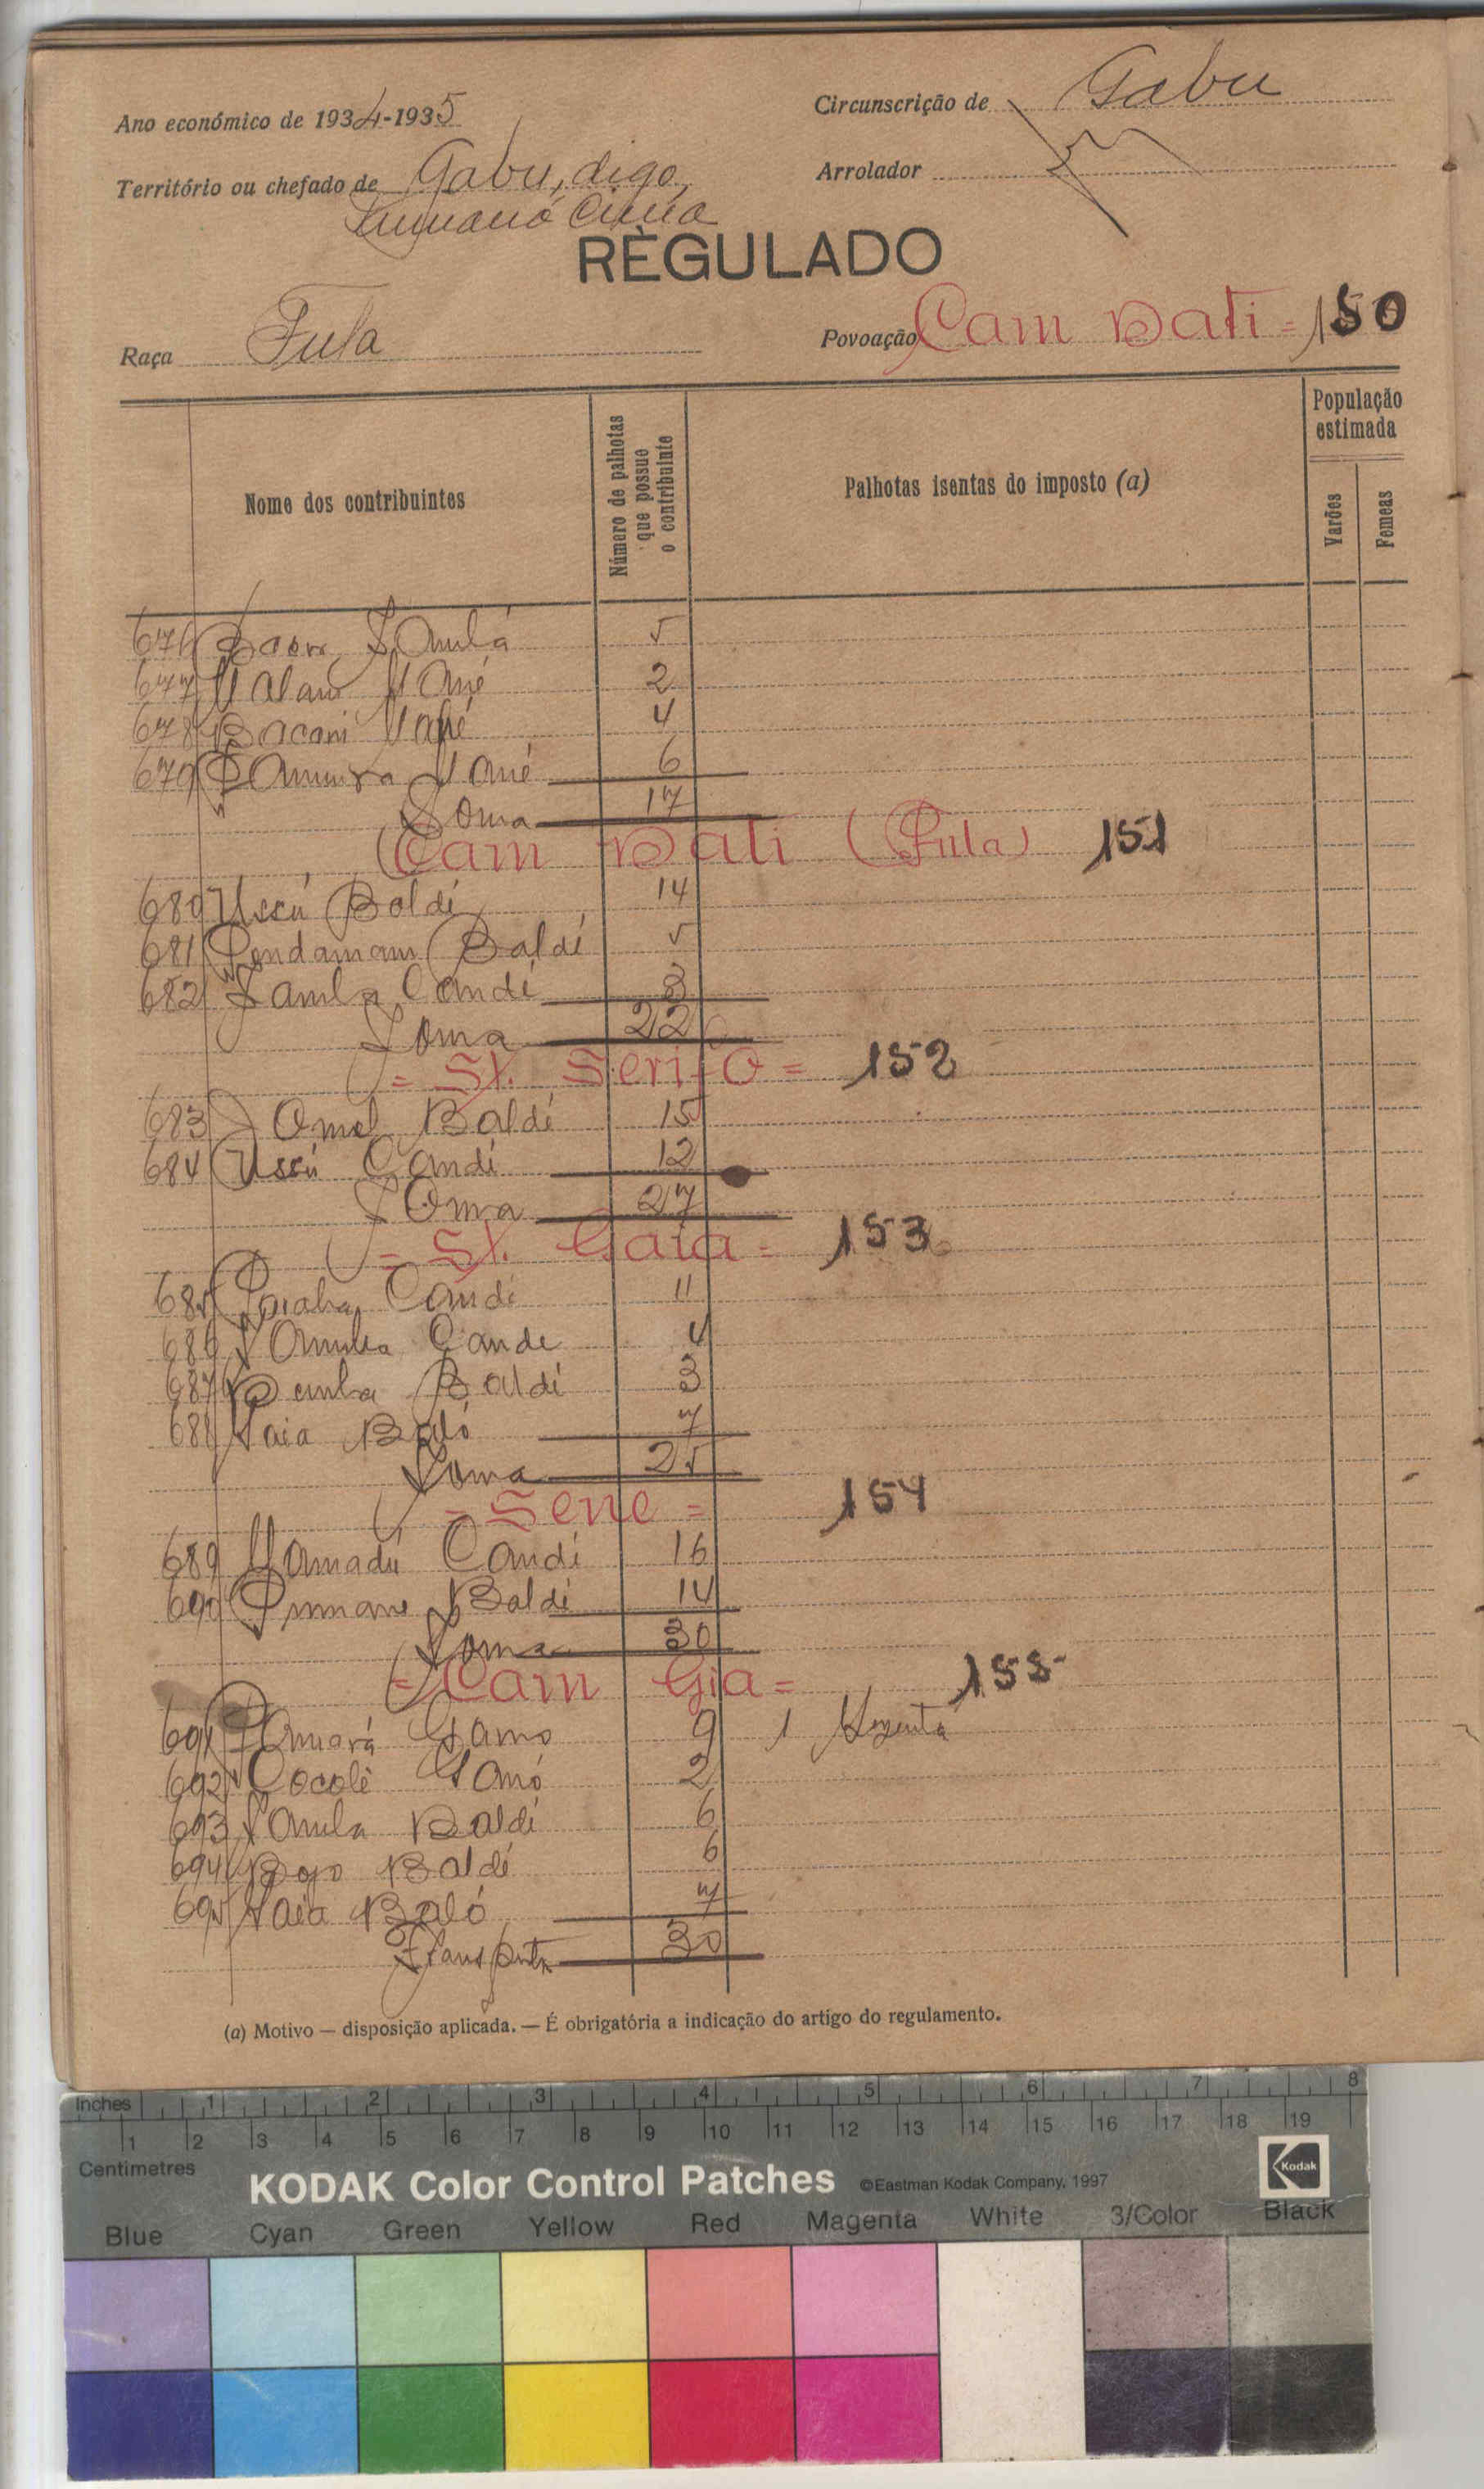 Ano económico de 1934-1935
Circunscrição de Gabu
Território ou chefado de Gabu, digo,
Arrolador
RÈGULADO
Raça Fula
Povoação Cam Bati = 150
Nome dos contribuintes
Número de palhotas que possue o contribuinte
Palhotas isentas do imposto (a)
População estimada
Varões
Femeas
676 Samba 5
677 Malam Mané 2
678 Bacari Mané 4
679 Mané 6
Soma 17
Cam Bati (Fula) 151
680 Ussú Baldé 14
681 Pendamam Baldé 5
682 Samba Candé 3
Soma 22
= St. Serifo = 152
683 Baldé 15
684 Ussú Candé 12
Soma 27
= St. Gaia = 153
685 Candé 11
686 Candé 4
687 Demba Baldé 3
688 Saia Baló 7
Soma 25
= Sene = 154
689 Mamadú Candé 16
690 Baldé 14
Soma 30
= Cam Gia = 155
691 Gano 9 1
692 Cocolé Ganó 2
693 Samba Baldé 6
694 Bojo Baldé 6
695 Saia Baló 7
Transporte 30
(a) Motivo — disposição aplicada. — É obrigatória a indicação do artigo do regulamento.
Inches 1 2 3 4 5 6 7 8
1 2 3 4 5 6 7 8 9 10 11 12 13 14 15 16 17 18 19
Centimetres
KODAK Color Control Patches ©Eastman Kodak Company, 1997 Kodak
Blue Cyan Green Yellow Red Magenta White 3/Color Black